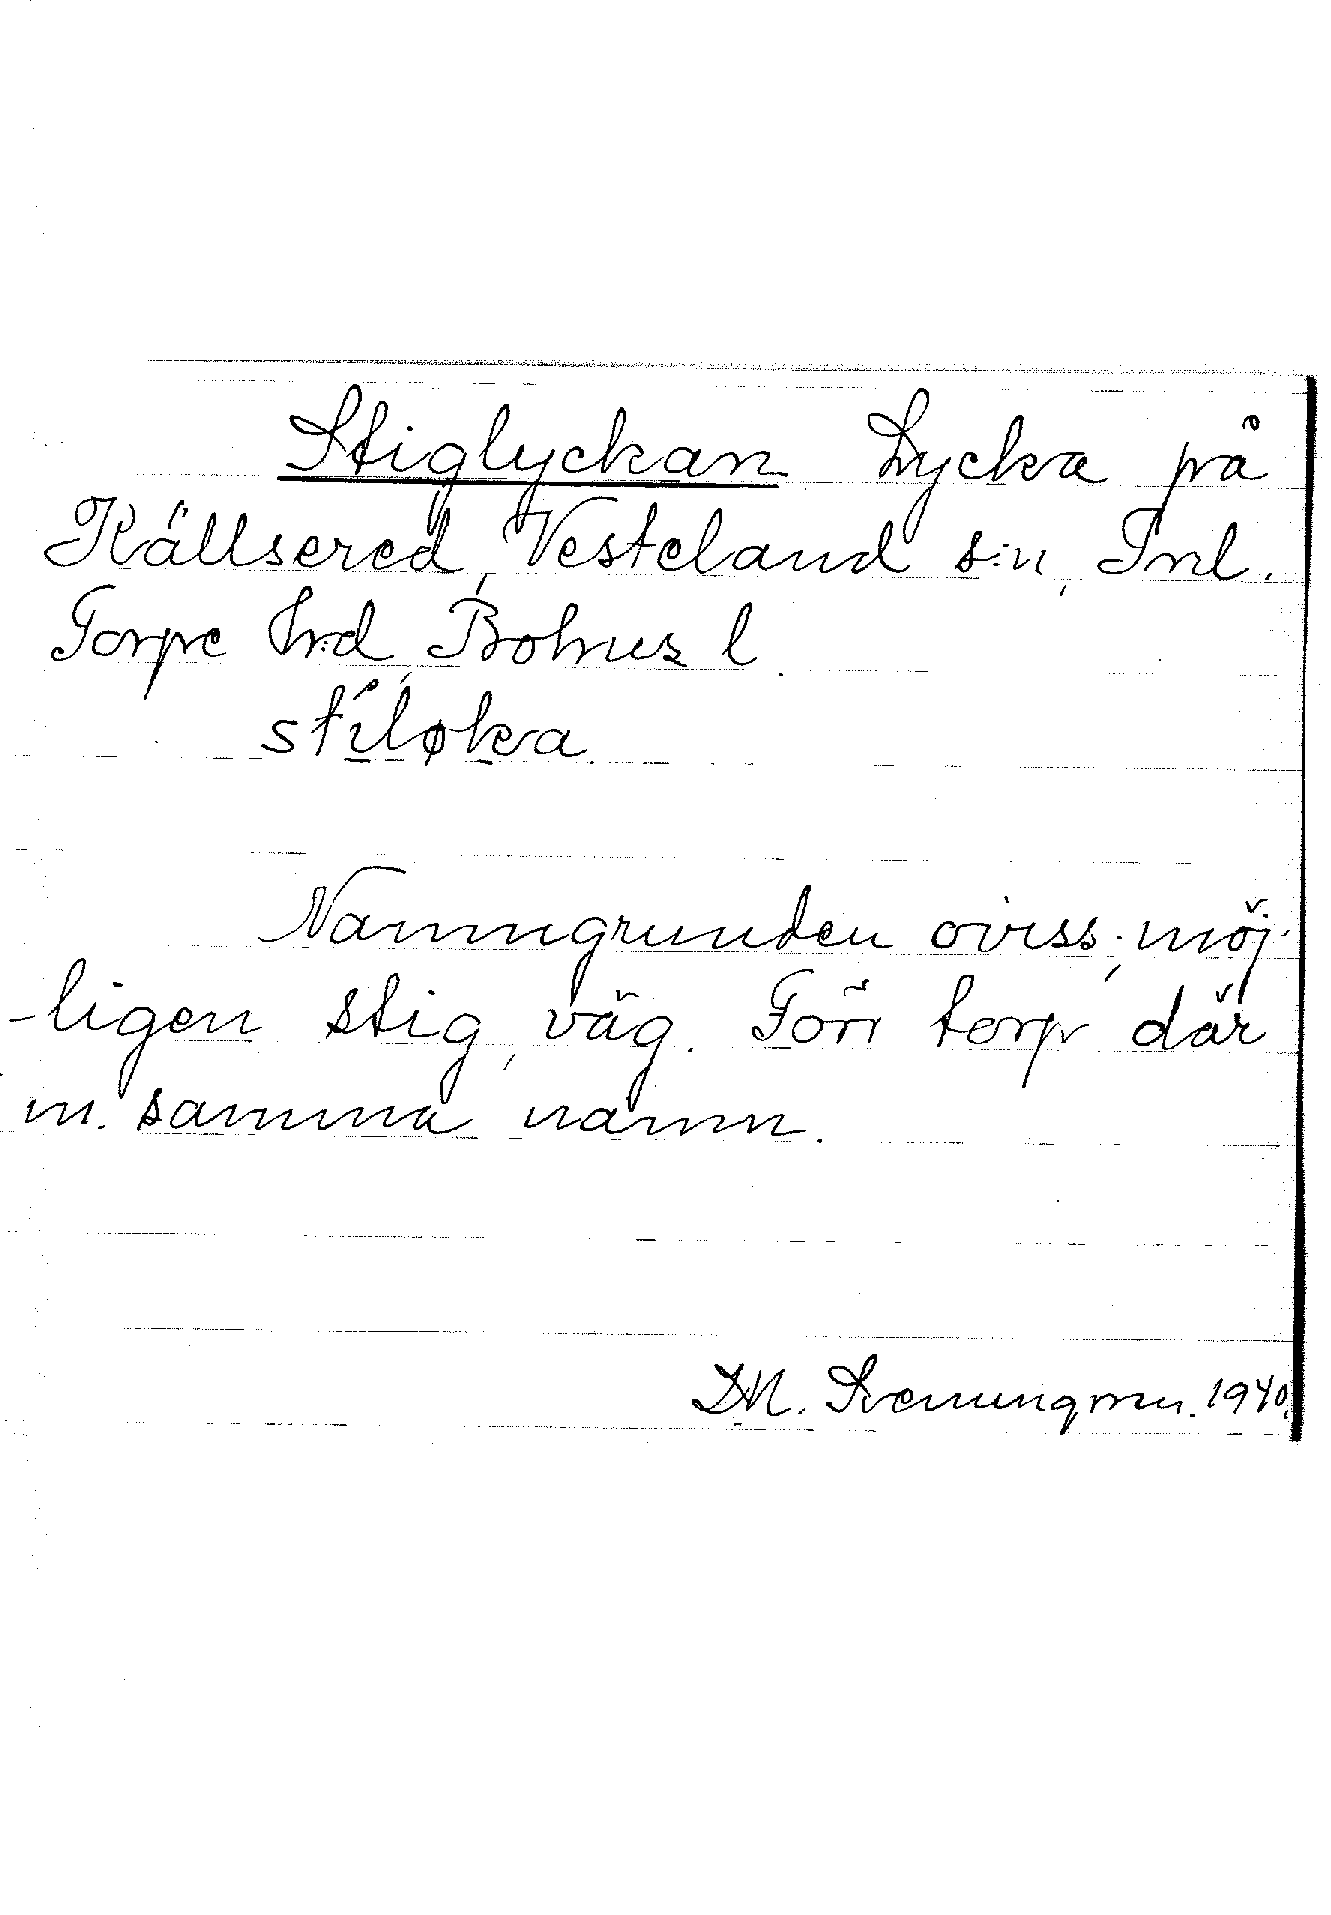 Stiglyckan Lycka på
Källsered, Vesteland s:n, Inl.
Torpe h:d, Bohus l.
stíløka.
Namngrunden oviss; möj-
-ligen stig, väg. Förr torp där
m. samma namn.
D.N. Svenungsson. 1940.